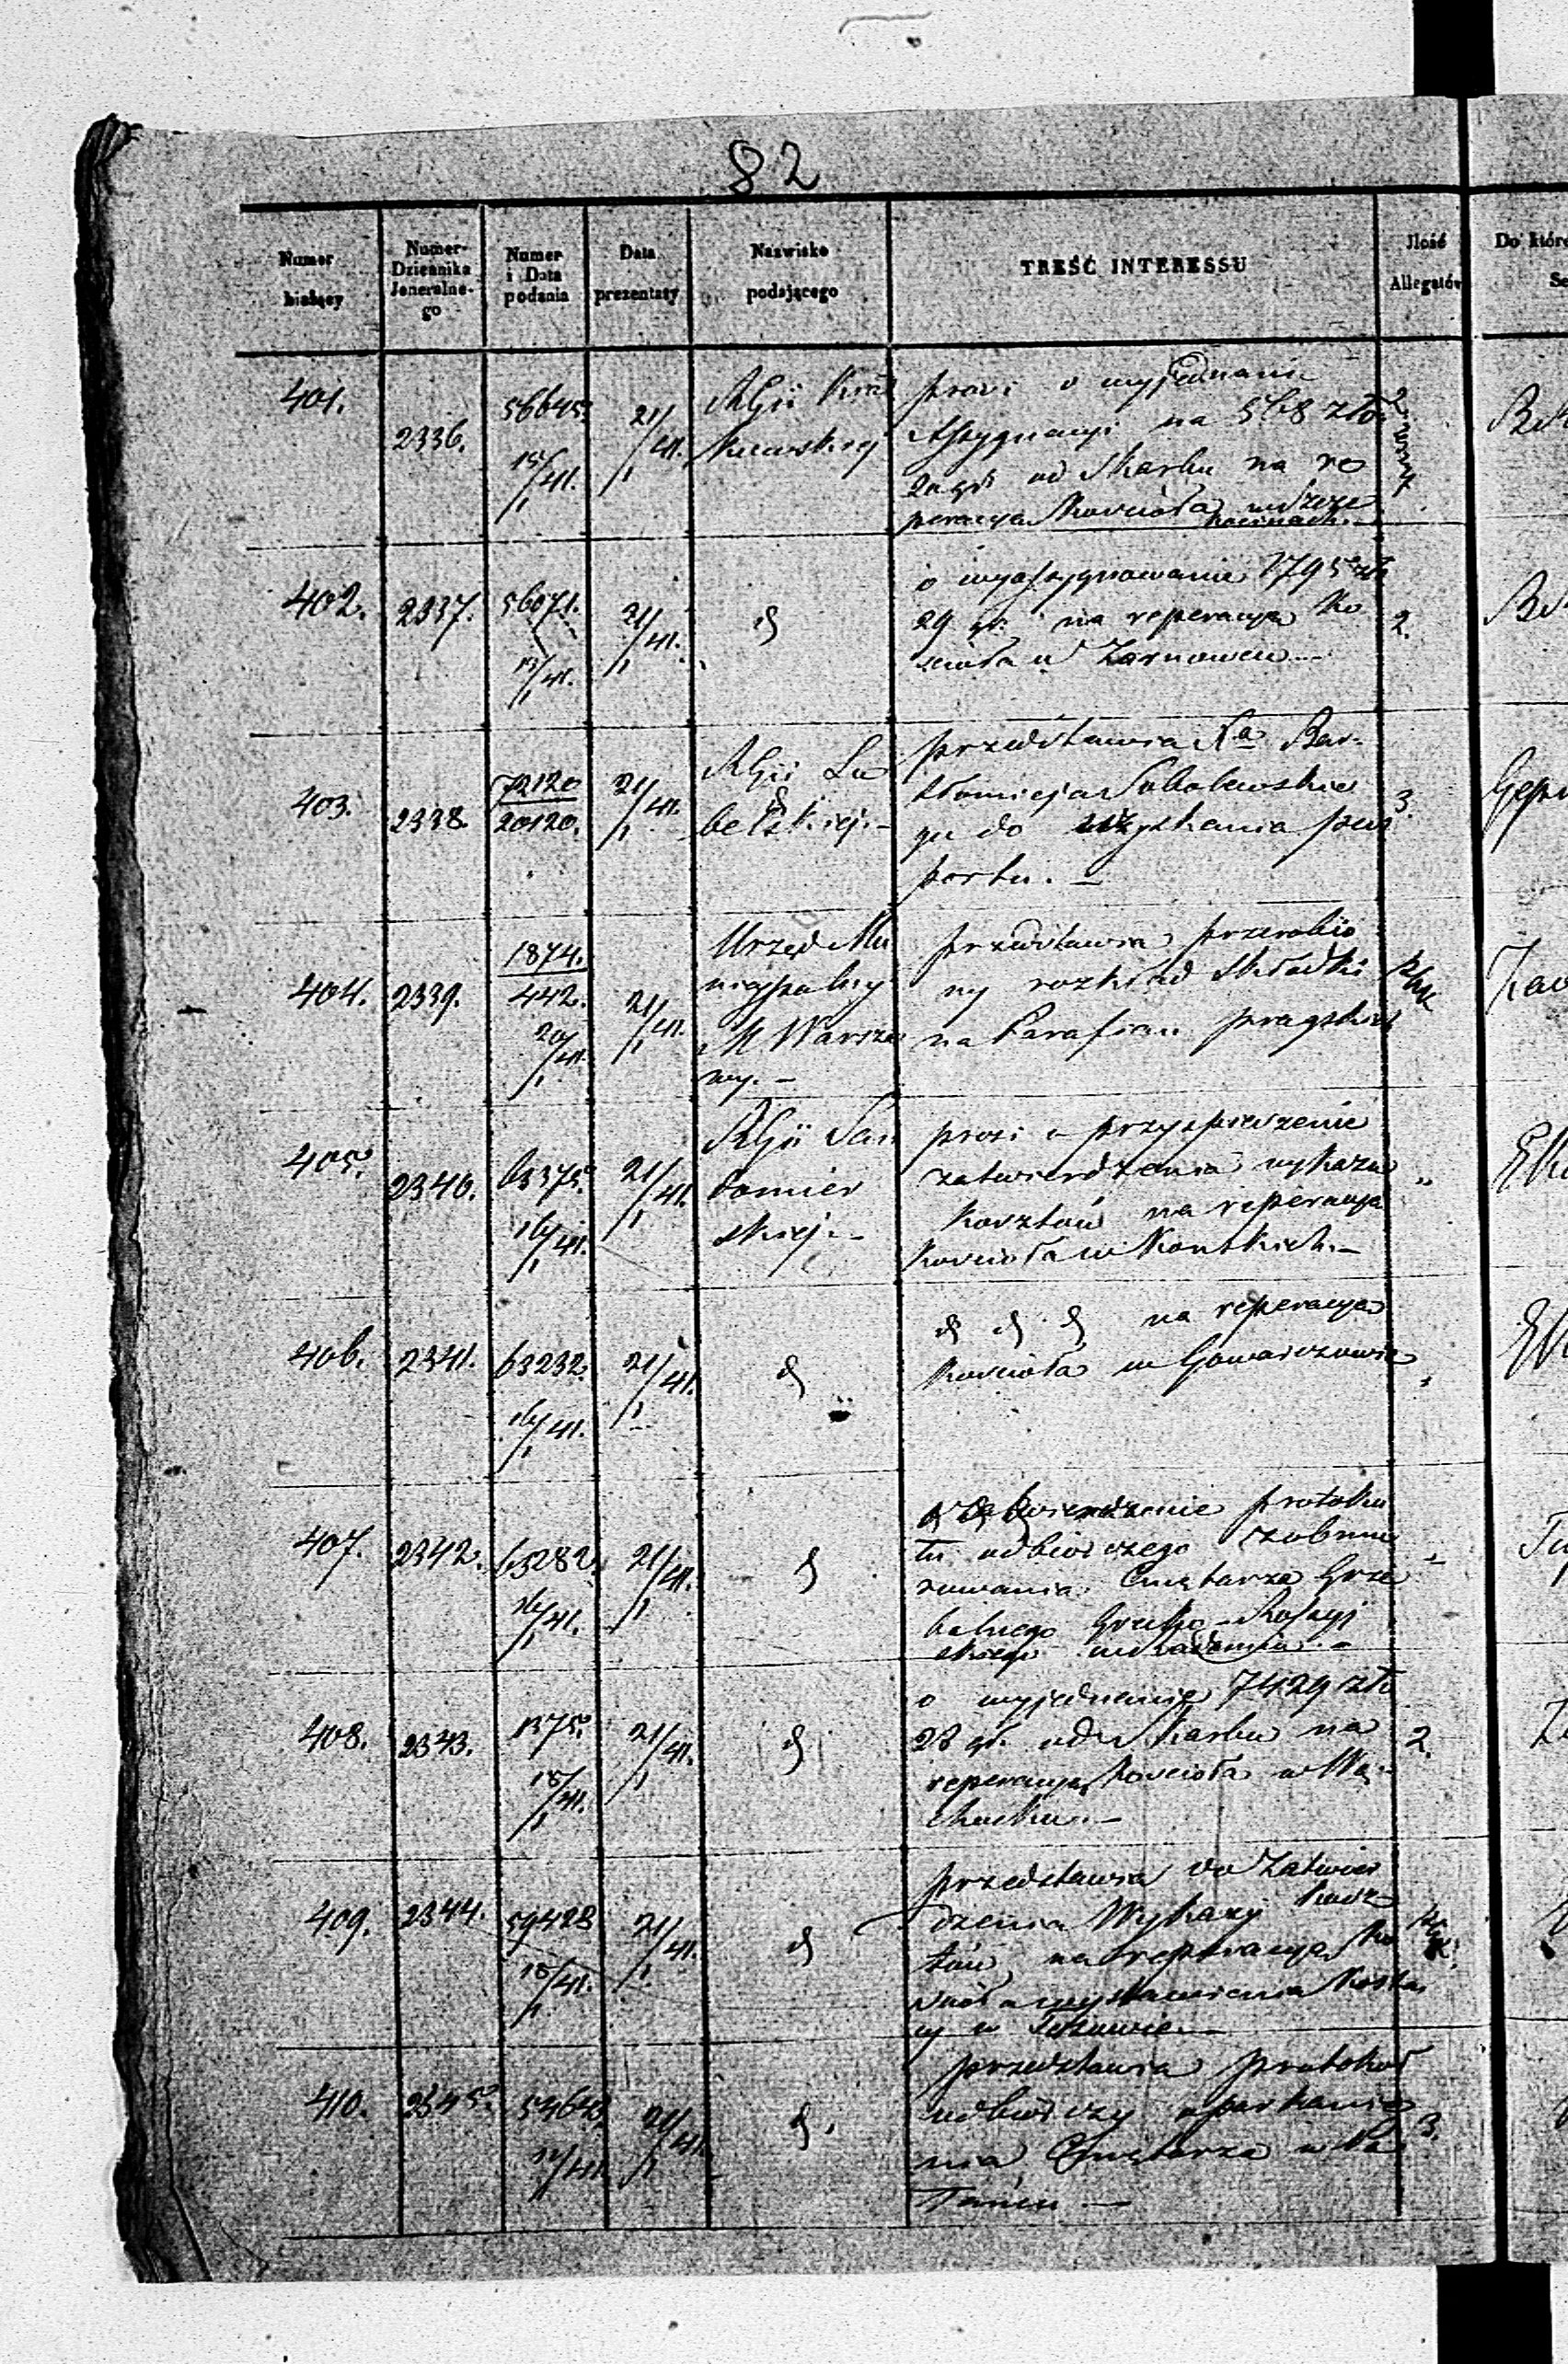 82
Numer bieżący
Numer Dziennika Jeneralnego
Numer i Data podania
Data prezentaty
Nazwisko podającego
TREŚĆ INTERESSU
Ilość Allegatów
Do które
Se
401.
2336.
56645.
15/1 41.
21/1 41.
RGii Kra
kowskiej
prosi o wyjednanie
Assygnacyi na 568 złp
20 gr. od Skarbu na re
peracyą Kościoła
402.
2337.
56071.
13/1 41.
21/1 41.
o wyassygnowanie 1795 złp
29 gr. na reperacyą Ko
ścioła w Żarnowcu
2.
403.
2338.
72120
20120.
21/1 41.
RGii Lu
belskiej.
przedstawia Xa Bar
tłomieja Sobolewskie
go do uzyskania pasz
portu. —
3.
404.
2339.
1874.
442.
20/1 41.
21/1 41.
Urząd Mu
nicypalny
M. Warsza
wy. —
przedstawia przerobio
ny rozkład składki
na Parafian pragskich
405.
2340.
63375.
16/1 41.
21/1 41.
RGii San
domier
skiej. —
prosi o przyspieszenie
zatwierdzenia wykazu
kosztów na reperacyą
Kościoła w Konskich. —
"
406.
2341.
63232.
16/1 41.
21/1 41.
na reperacyą
Kościoła w Gowarczowie
"
407.
2342.
63282.
16/1 41.
21/1 41.
zatwierdzenie protoku
łu odbiorczego
rowania Cmętarza Grze
balnego Grecko-Rossyj
skiego w Radomiu. —
"
408.
2343.
1375.
15/1 41.
21/1 41.
o wyjednanie 7429 złp
28 gr. od Skarbu na
reperacyą Kościoła w Wą
chocku. —
2.
409.
2344.
59428
15/1 41.
21/1 41.
przedstawia do zatwier
dzenia Wykazy kosz
tów na reperacyą Ko
ścioła wystawienia Kostni
cy w
410.
2345.
54643.
12/1 41.
21/1 41.
przedstawia protokoł
odbiorczy oparkanie
nia Cmętarza w
3.